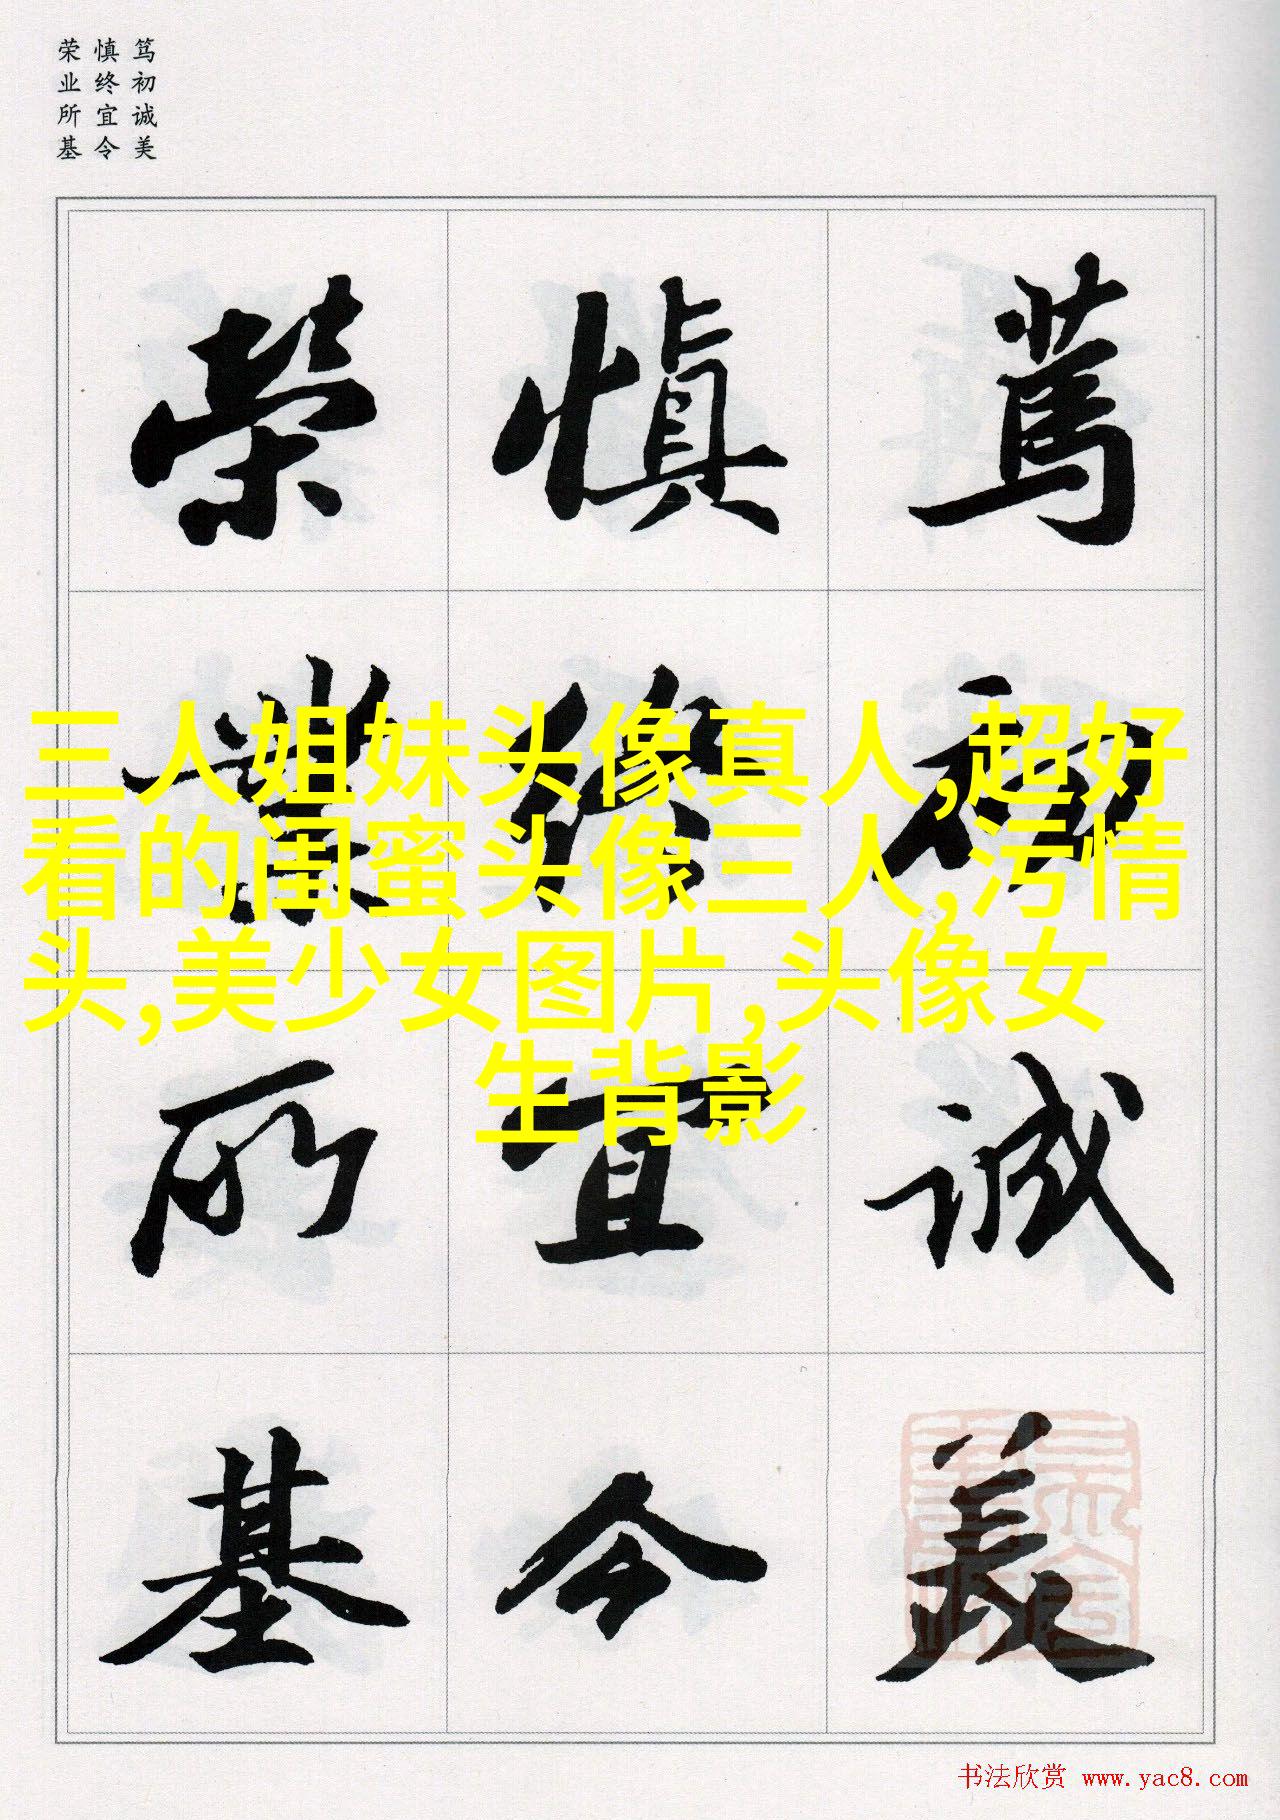 笃初诚美
慎终宜令
荣业所基
篤初誠美
慎終宜令
榮業所基
三人姐妹头像真人,超好
看的闺蜜头像三人,污情
头,美少女图片,头像女
生背影
书法欣赏 www.yac8.com